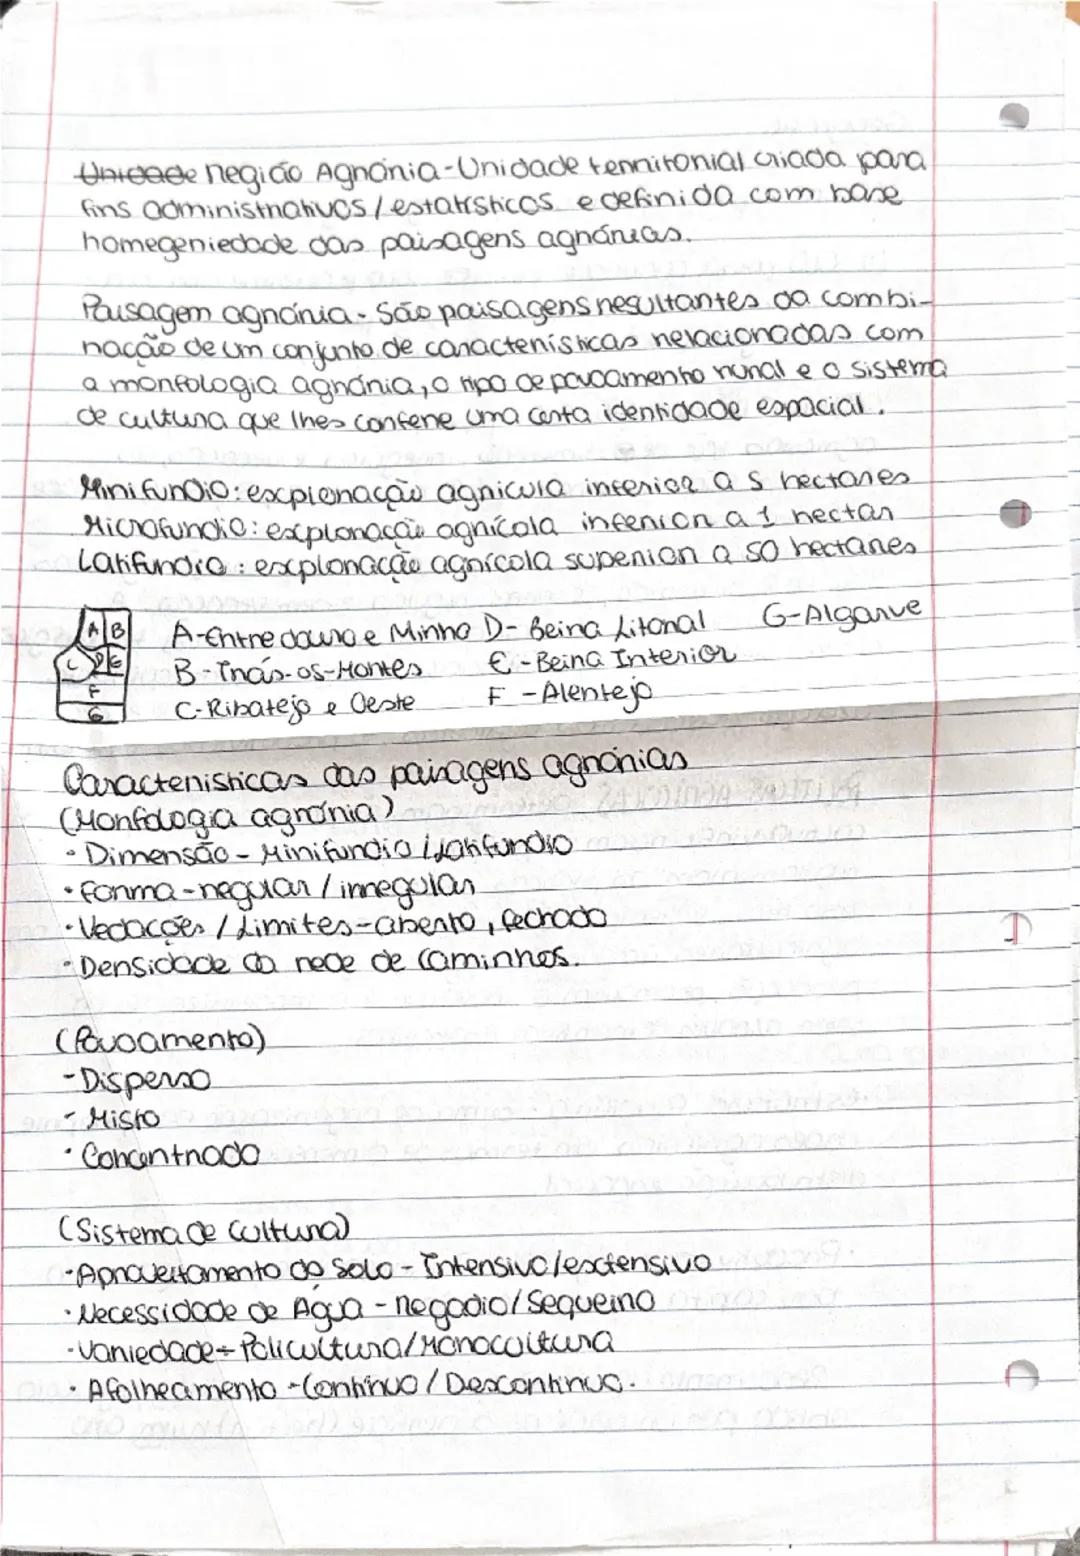 Unidade região Agrária-Unidade territorial criada para
fins administrativos/estatísticos e definida com base
homegeniedade das paisagens agrárias.
Paisagem agrária - São paisagens resultantes da combi-
nação de um conjunto de características relacionadas com
a morfologia agrária, o tipo de povoamento rural e o sistema
de cultura que lhes confere uma certa identidade espacial.
Minifundio: exploração agricula inferior a 5 hectares
Microfundio: exploração agrícola inferior a 1 hectar
Latifundio: exploração agrícola superior a 50 hectares
A B
C D E
F
G
A-Entre douro e Minho D- Beira Litoral G-Algarve
B-Trás-os-Montes E-Beira Interior
C-Ribatejo e Oeste F-Alentejo
Características das paisagens agrárias
(Morfologia agrária)
• Dimensão - Minifundio/Latifundio
• Forma-regular/irregular
• Vedações/Limites-aberto, fechado
- Densidade da rede de caminhos.
(Povoamento)
- Disperso
- Misto
• Concentrado
(Sistema de cultura)
- Aproveitamento do Solo - Intensivo/extensivo
• Necessidade de Água - regadio/Sequeiro
- Variedade- Policultura/Monocultura
• Afolheamento - Contínuo/Descontínuo.